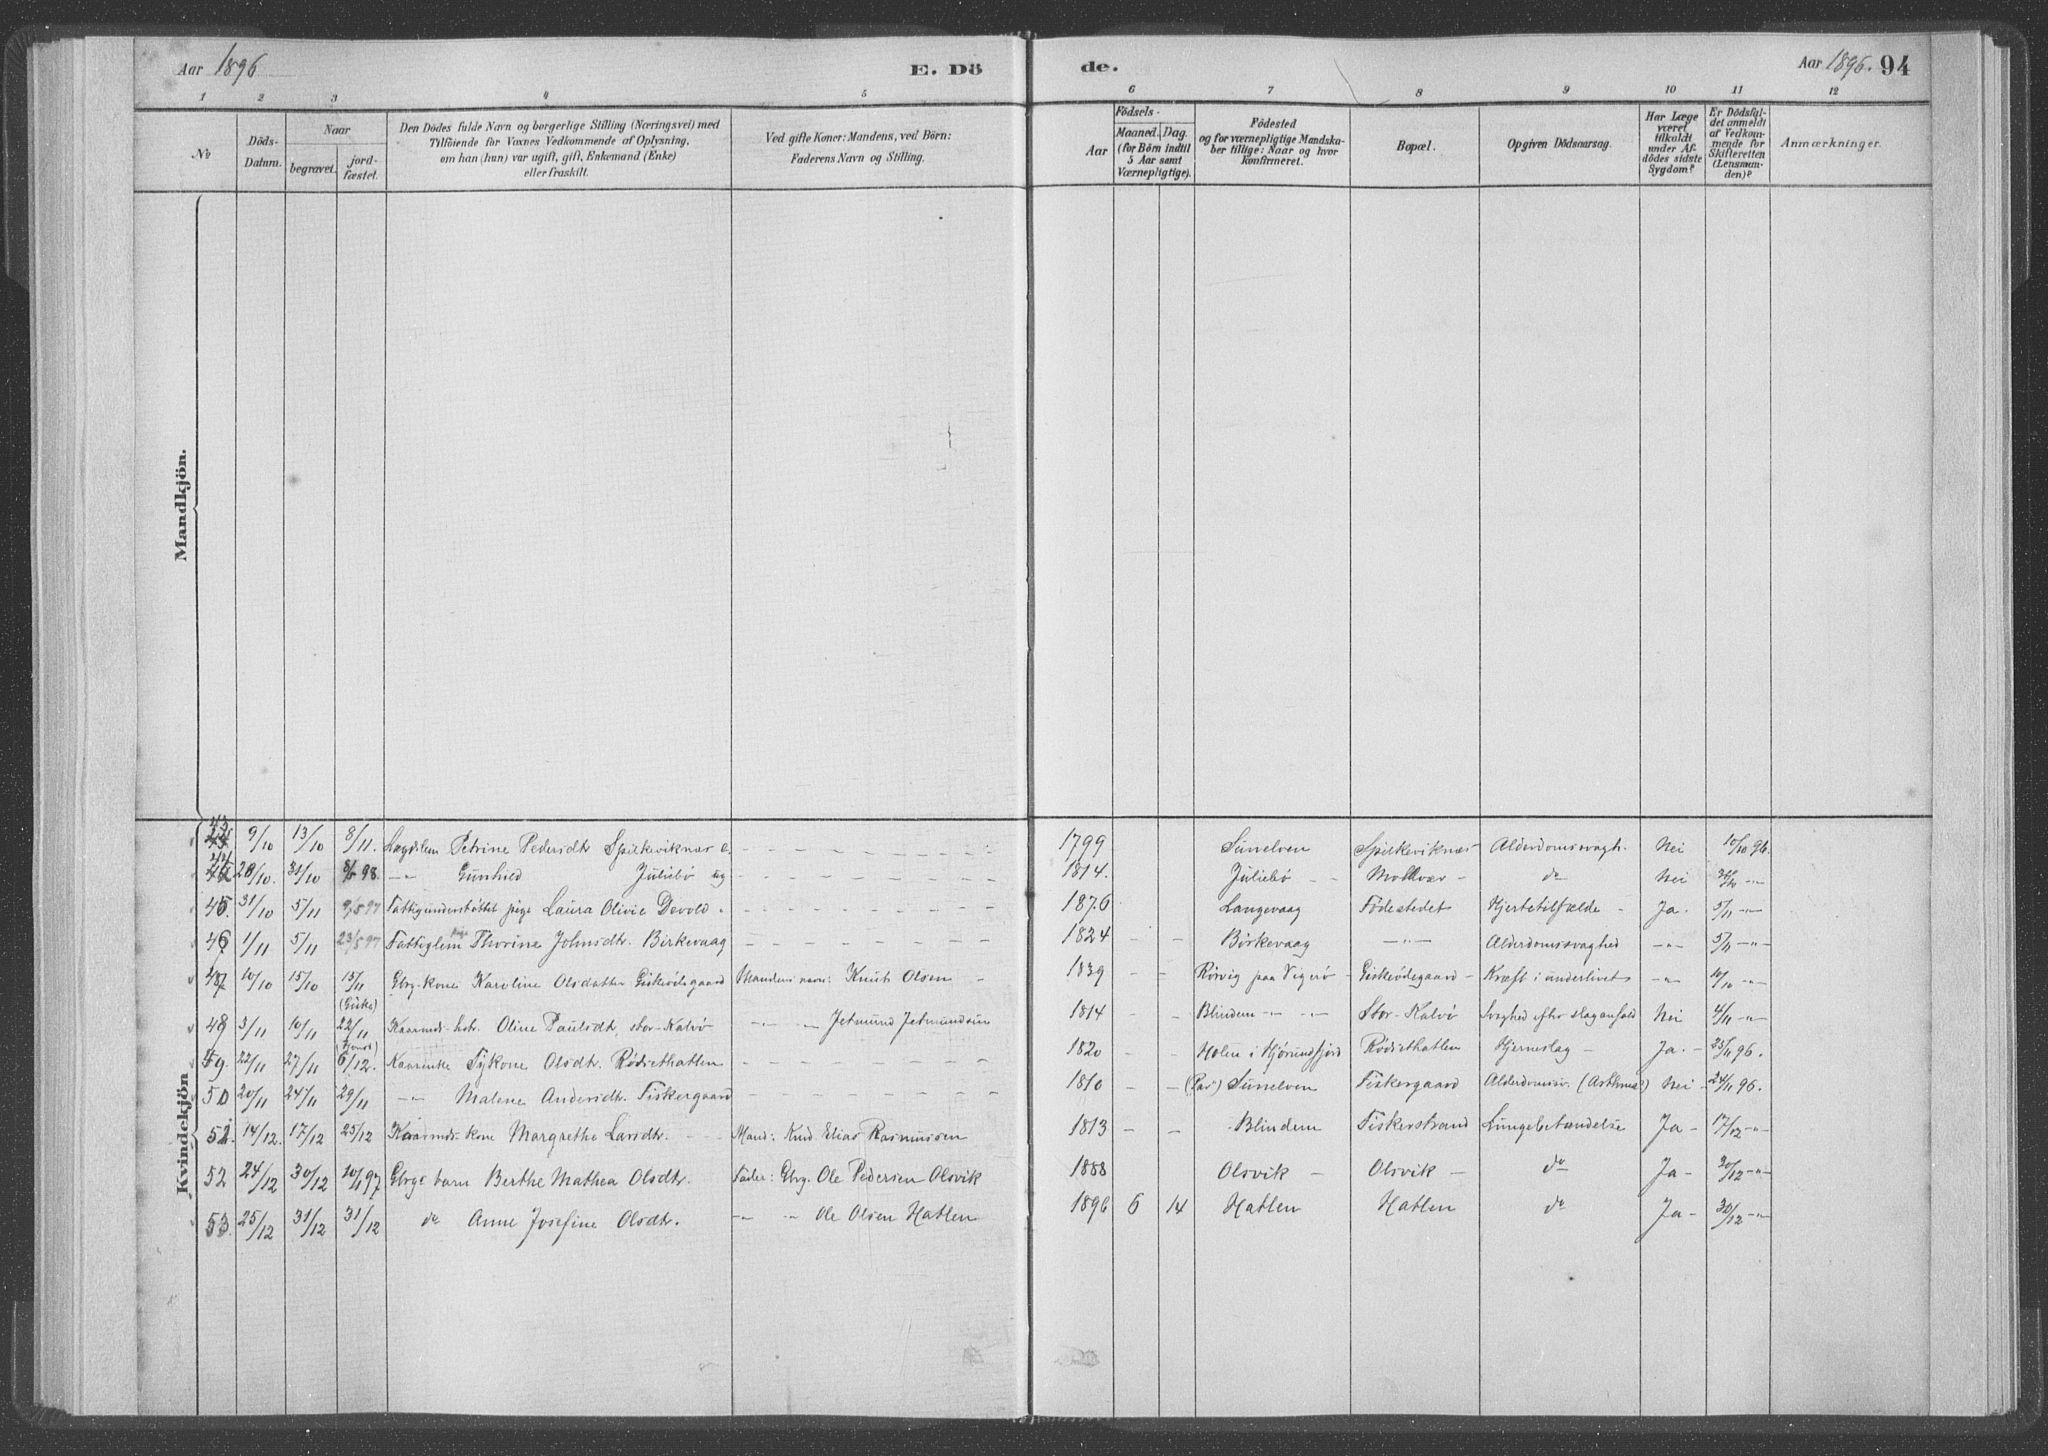 Aar 1896
E. Dö
de.
Aar 1896. 94
1 2 3 4 5 6 7 8 9 10 11 12
No
Döds-Datum.
Naar
begravet.
jordfæstet.
Den Dödes fulde Navn og borgerlige Stilling (Næringsvei) med
Tilföiende for Voxnes Vedkommende af Oplysning,
om han (hun) var ugift, gift, Enkemand (Enke)
eller fraskilt.
Ved gifte Koner: Mandens, ved Börn:
Faderens Navn og Stilling.
Födsels-
Aar
Maaned. Dag.
(for Börn indtil
5 Aar samt
Værnepligtige).
Födested
og for værnepligtige Mandska-
ber tillige: Naar og hvor
konfirmeret.
Bopæl.
Opgiven Dödsaarsag.
Har Læge
været
tilkaldt
under Af-
dödes sidste
Sygdom?
Er Dödsfal-
det anmeldt
af Vedkom-
mende for
Skifteretten
(Lensman-
den)?
Anmærkninger.
Mandkjön.
Kvindekjön
43 9/10 13/10 8/11. Lægdslem Petrine Pedersdtr Spilkeviknæs e. 1799 Sunelven Spilkeviknæs Alderdomssvagh. Nei 10/10 96.
44 28/10. 31/10 98. -"- Gunhild Juliebö ug 1814. Juliebö Nei
45. 31/10 5/11 97 Fattigunderstöttet pige Laura Olivie Devold 1876 Langevaag Födestedet Hjertetilfælde Ja. 5/11 -"-
46 1/11 5/11 23/5 97 Fattiglem pige Thorine Johnsdtr. Birkevaag 1824 - - Börkevaag -"- Alderdomssvaghed -"- 5/11 -"-
47 10/10 15/10 15/11 (Giske) Gbrg. kone Karoline Olsdatter Giskeödegaard Mandens navn: Knut Olsen 1839 - - Rörvig paa Vigerö Giskeödegaard Kræft i underlivet -"- 10/10 -"-
48 3/11 10/11 22/11 Kaarmds. hst. Oline Paulsdtr. Stor-Kalvö -"- -"- Jetmund Jetmundsen 1814 - - Blindem Stor-Kalvö Svaghed efter slaganfald Nei 4/11 -"-
49. 22/11 27/11 6/12. Kaarenke Sykone Olsdtr. Rödsethatlen 1820 - - Holen i Hjörundfjord Rödsethatlen Hjerneslag Ja. 25/11 96.
50 20/11 24/11 29/11 -"- Malene Andersdtr. Fiskergaard 1810 - - Sunelven Fiskergaard Alderdomssv. (Asthma) Nei 24/11 96.
51. 14/12. 17/12 25/12 Kaarmds kone Margrethe Larsdtr. Mand: Knud Elias Rasmussen 1813 - - Blindem Fiskerstrand Lungebetændelse Ja 17/12 -"-
52 24/12 30/12 10/1 97 Gbrgs barn Berthe Mathea Olsdtr. Fader: Gbrg. Ole Pedersen Olsvik 1888 Olsvik Olsvik do Ja 30/12 -"-
53. 25/12 31/12 31/12 do Anne Josefine Olsdtr. -"- -"- Ole Olsen Hatlen 1896 6 14 Hatlen Hatlen do Ja 30/12 -"-